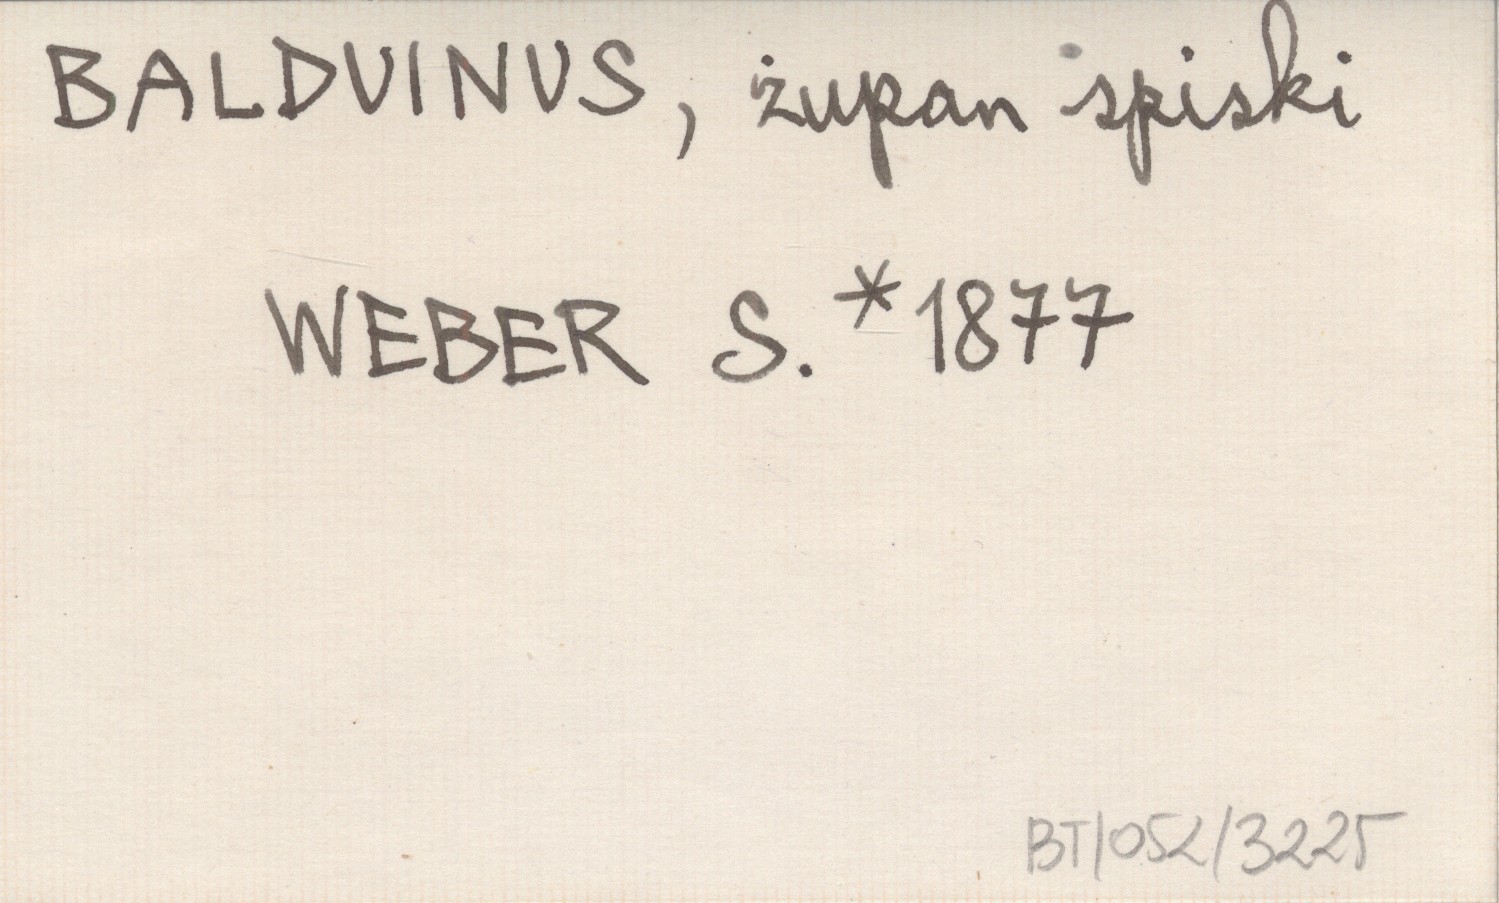 BALDUINUS, żupan spiski
WEBER S. *1877
BT/052/3225